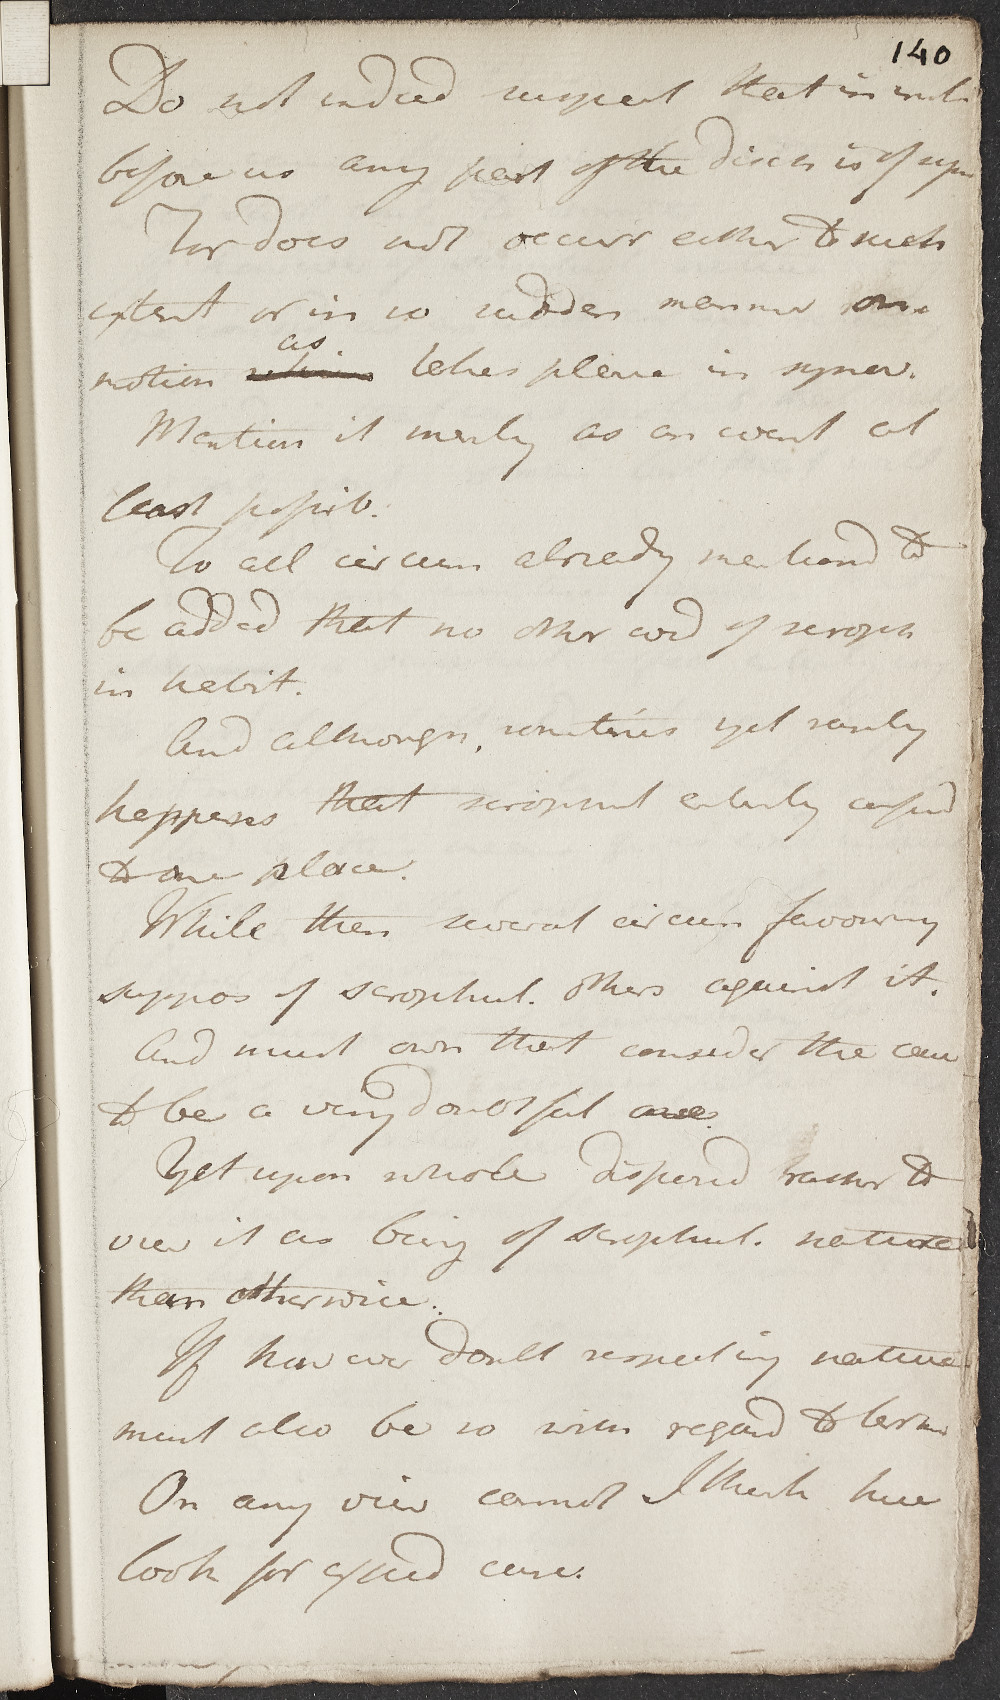 140
Do not indeed suspect that in
before us any part of the diseas is of
For does not occurr either to such
extent or in so sudden manner
as
motion takes place in
Mention it merely as an event at
least possib.
To all circum already mentiond to
be added that no other evid of scroph
in habit.
And although, sometimes yet rarely
happens that scrophul entirely confind
to one place.
While then several circum favouring
suppos of scrophul. others against it.
And must own that consider the case
to be a very doubtful one.
Yet upon whole disposed rather to
view it as being of scrophul. nature
than otherwise.
If however doubt respecting nature
must also be so with regard to termn
On any view cannot I think here
look for speed cure.